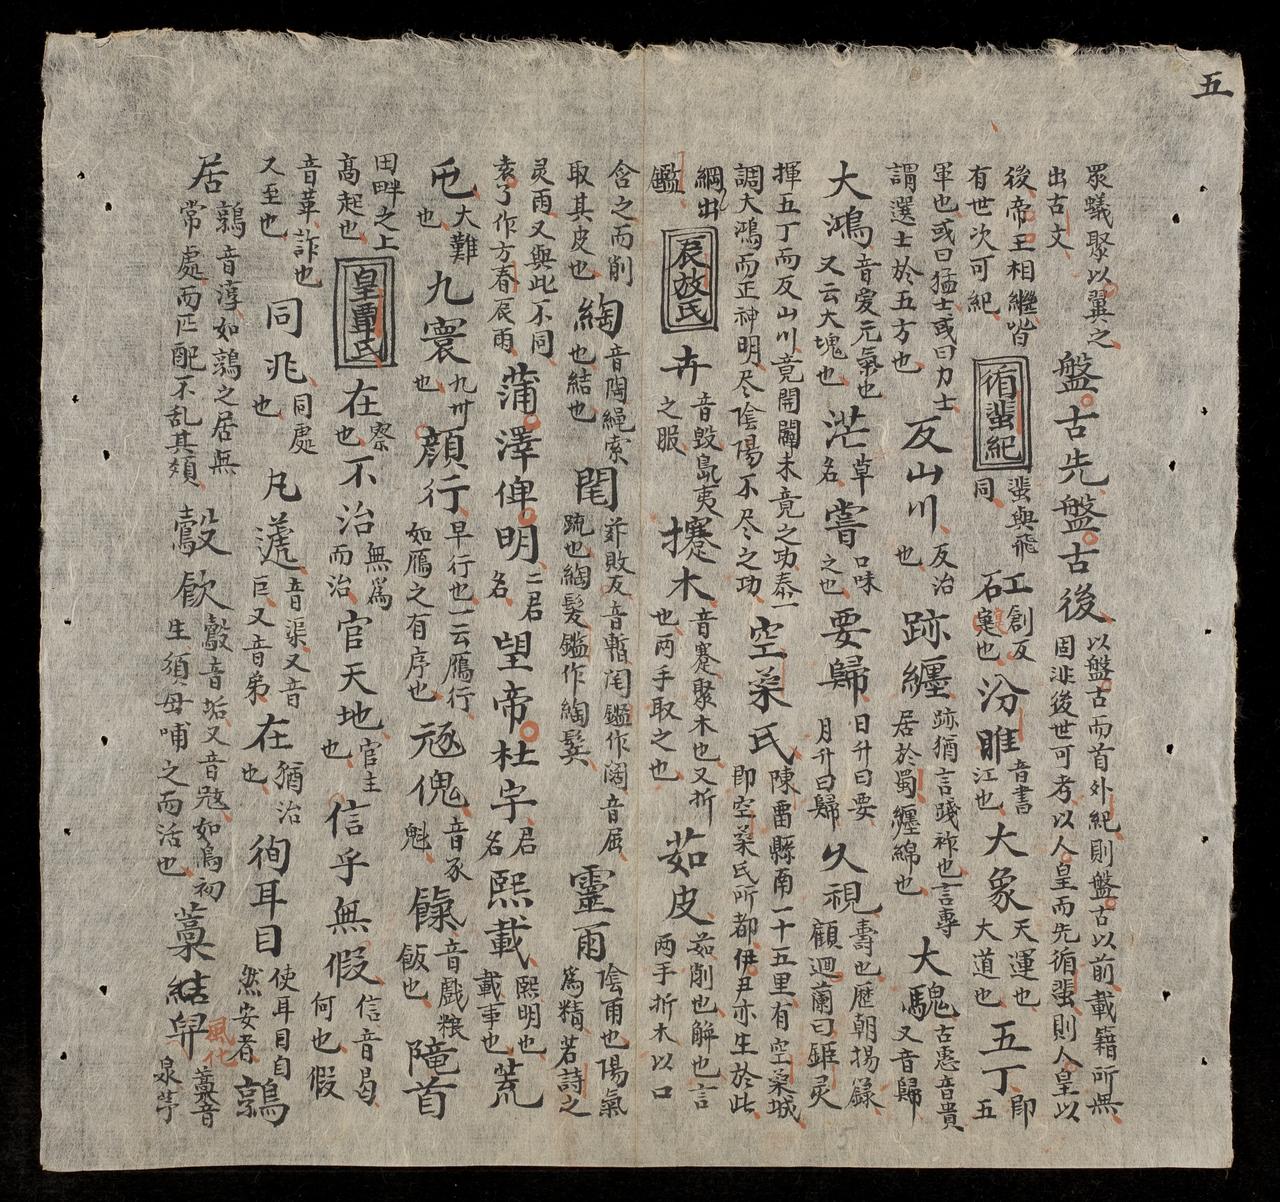 五
眾蟻聚以翼之
出古文
盤古先盤古後
以盤古而首外紀則盤古以前載籍所無
固非後世可考以人皇而先循蜚則人皇以
後帝王相繼皆
有世次可紀
循蜚紀
蜚與飛
同
石工
創反
寔也
汾睢
音書
江也
大象
天運也
大道也
五丁
即
五
軍也或曰猛士或曰力士
謂選士於五方也
反山川
反治
也
跡纏
跡猶言踐祚也言專
居於蜀纏綿也
大騩
古惠音貴
又音歸
大鴻
音愛元氣也
又云大塊也
茫
草
名
嘗
口味
之也
要歸
日升曰要
月升曰歸
久視
壽也歷朝揚籙
顧迴蘭曰鉅灵
揮五丁而反山川竟開闢未竟之功泰一
調大鴻而正神明尽陰陽不尽之功
空桑氏
陳畱縣南一十五里有空桑城
即空桑氏所都伊尹亦生於此
綱出
鑑
辰放氏
卉
音毀島夷
之服
攓木
音蹇聚木也又折
也两手取之也
茹皮
茹削也觧也言
两手折木以口
含之而削
取其皮也
綯
音陶繩索
也結也
髦
疏也綯髮鑑作綯髮
靈雨
陰雨也陽氣
為精若詩之
灵雨又與此不同
袁了作方春辰雨
蒲澤俾明
二君
名
望帝杜宇
君
名
熙載
熙明也
載事也
荒
屯
大難
也
九寰
九州
也
顔行
早行也一云鴈行
如鴈之有序也
豗傀
音豕
魁
餼
音戲粮
飯也
隆首
田畔之上
高起也
皇覃氏
在
察
也
不治
無為
而治
官天地
官主
也
信乎無假
信音曷
何也假
音革詐也
又至也
同兆
同處
也
凡蘧
音渠又音
巨又音弟
在
猶治
也
徇耳目
使耳目自
然安者
鶉
居
鶉音淳如鶉之居無
常處而匹配不乱其類
鷇飲
鷇音垢又音冦如鳥初
生須母哺之而活也
藁結
風化
藁音
泉苧